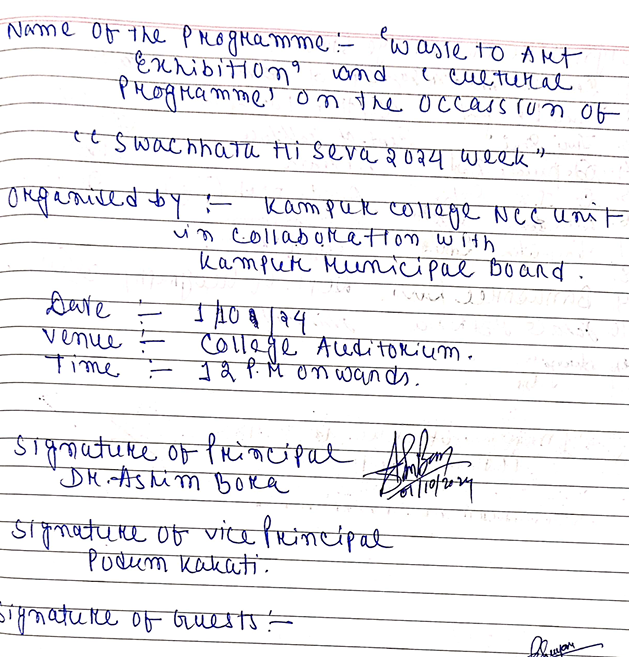 Name of the Programme:- "Waste to Art
Exhibition" and "Cultural
Programme" on the occassion of
"Swachhata Hi Seva 2024 Week"
Organised by :- Kampur College NCC Unit
in collaboration with
Kampur Municipal Board.
Date :- 1/10/24
Venue :- College Auditorium.
Time :- 12 P.M onwards.
Signature of Principal
Dr. Ashim Bora
01/10/2024
Signature of Vice Principal
Podum Kakati.
Signature of Guests:-